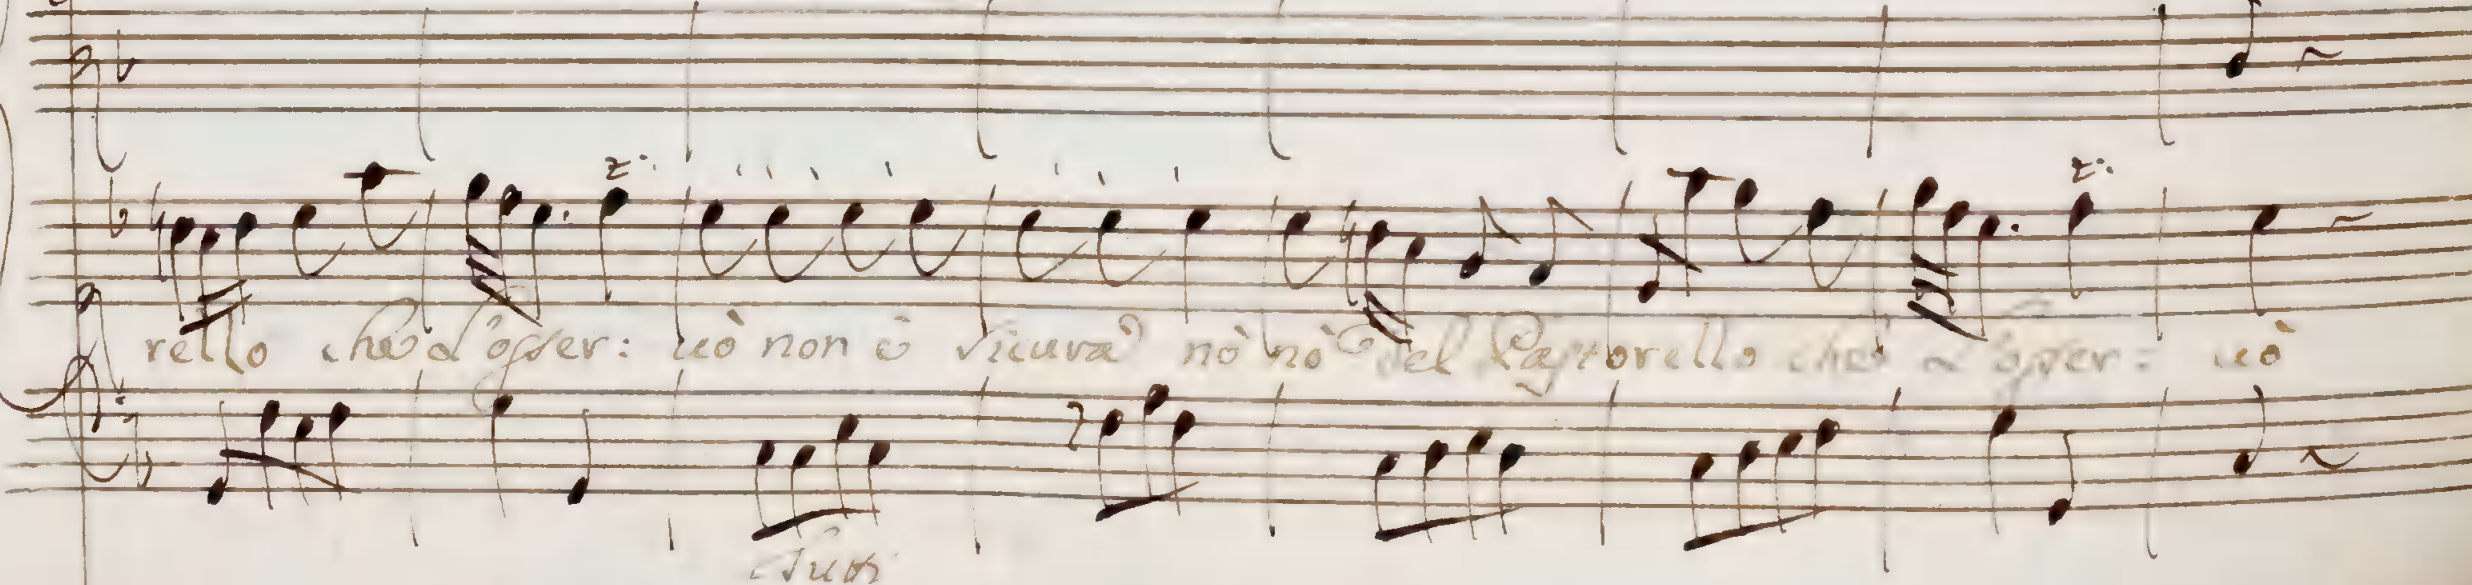 rello che l'osser: uò non è sicura nò nò del Pastorello che l'osser: uò
Tutti